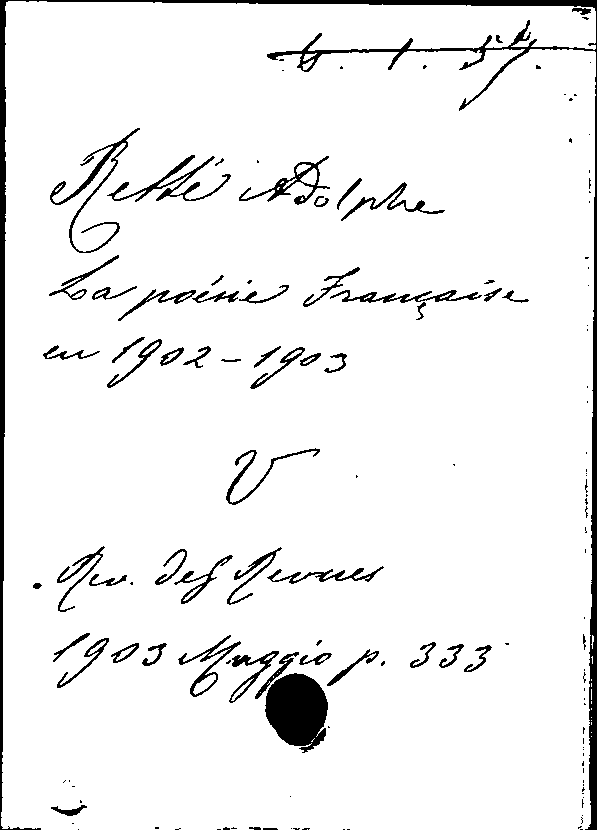 6. 1. 57.
Retté Adolphe
La poésie Française
en 1902-1903
V
Rev. des Revues
1903 Maggio p. 333